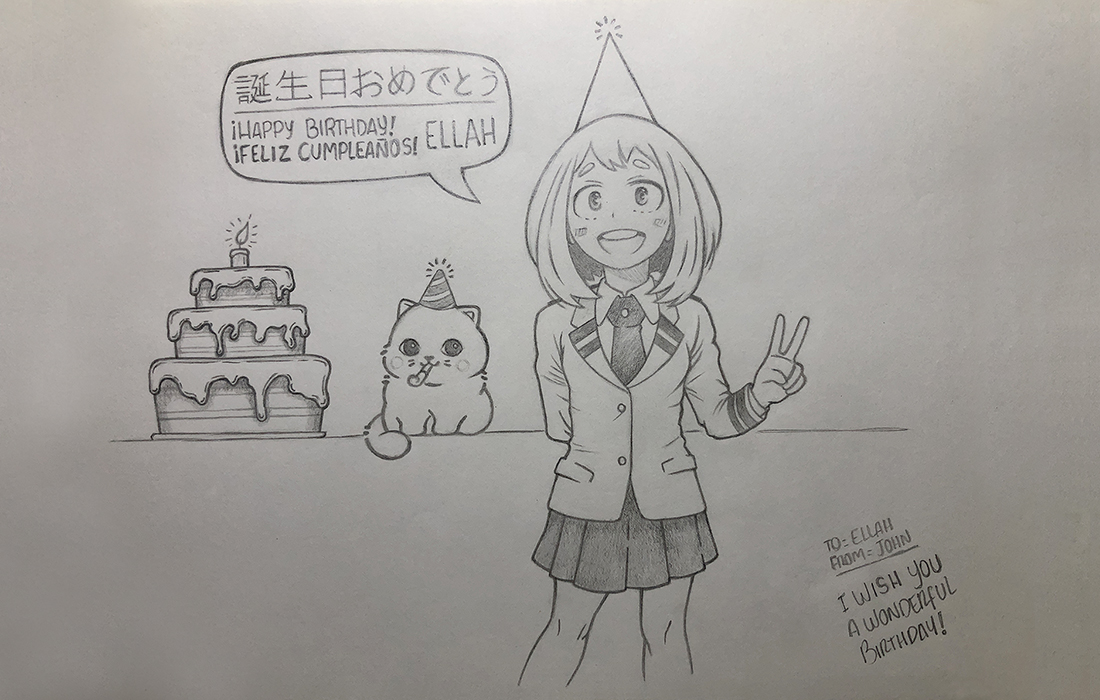 誕生日おめでとう
¡HAPPY BIRTHDAY!
¡FELIZ CUMPLEAÑOS! ELLAH
TO=ELLAH
FROM=JOHN
I WISH YOU
A WONDERFUL
BIRTHDAY!